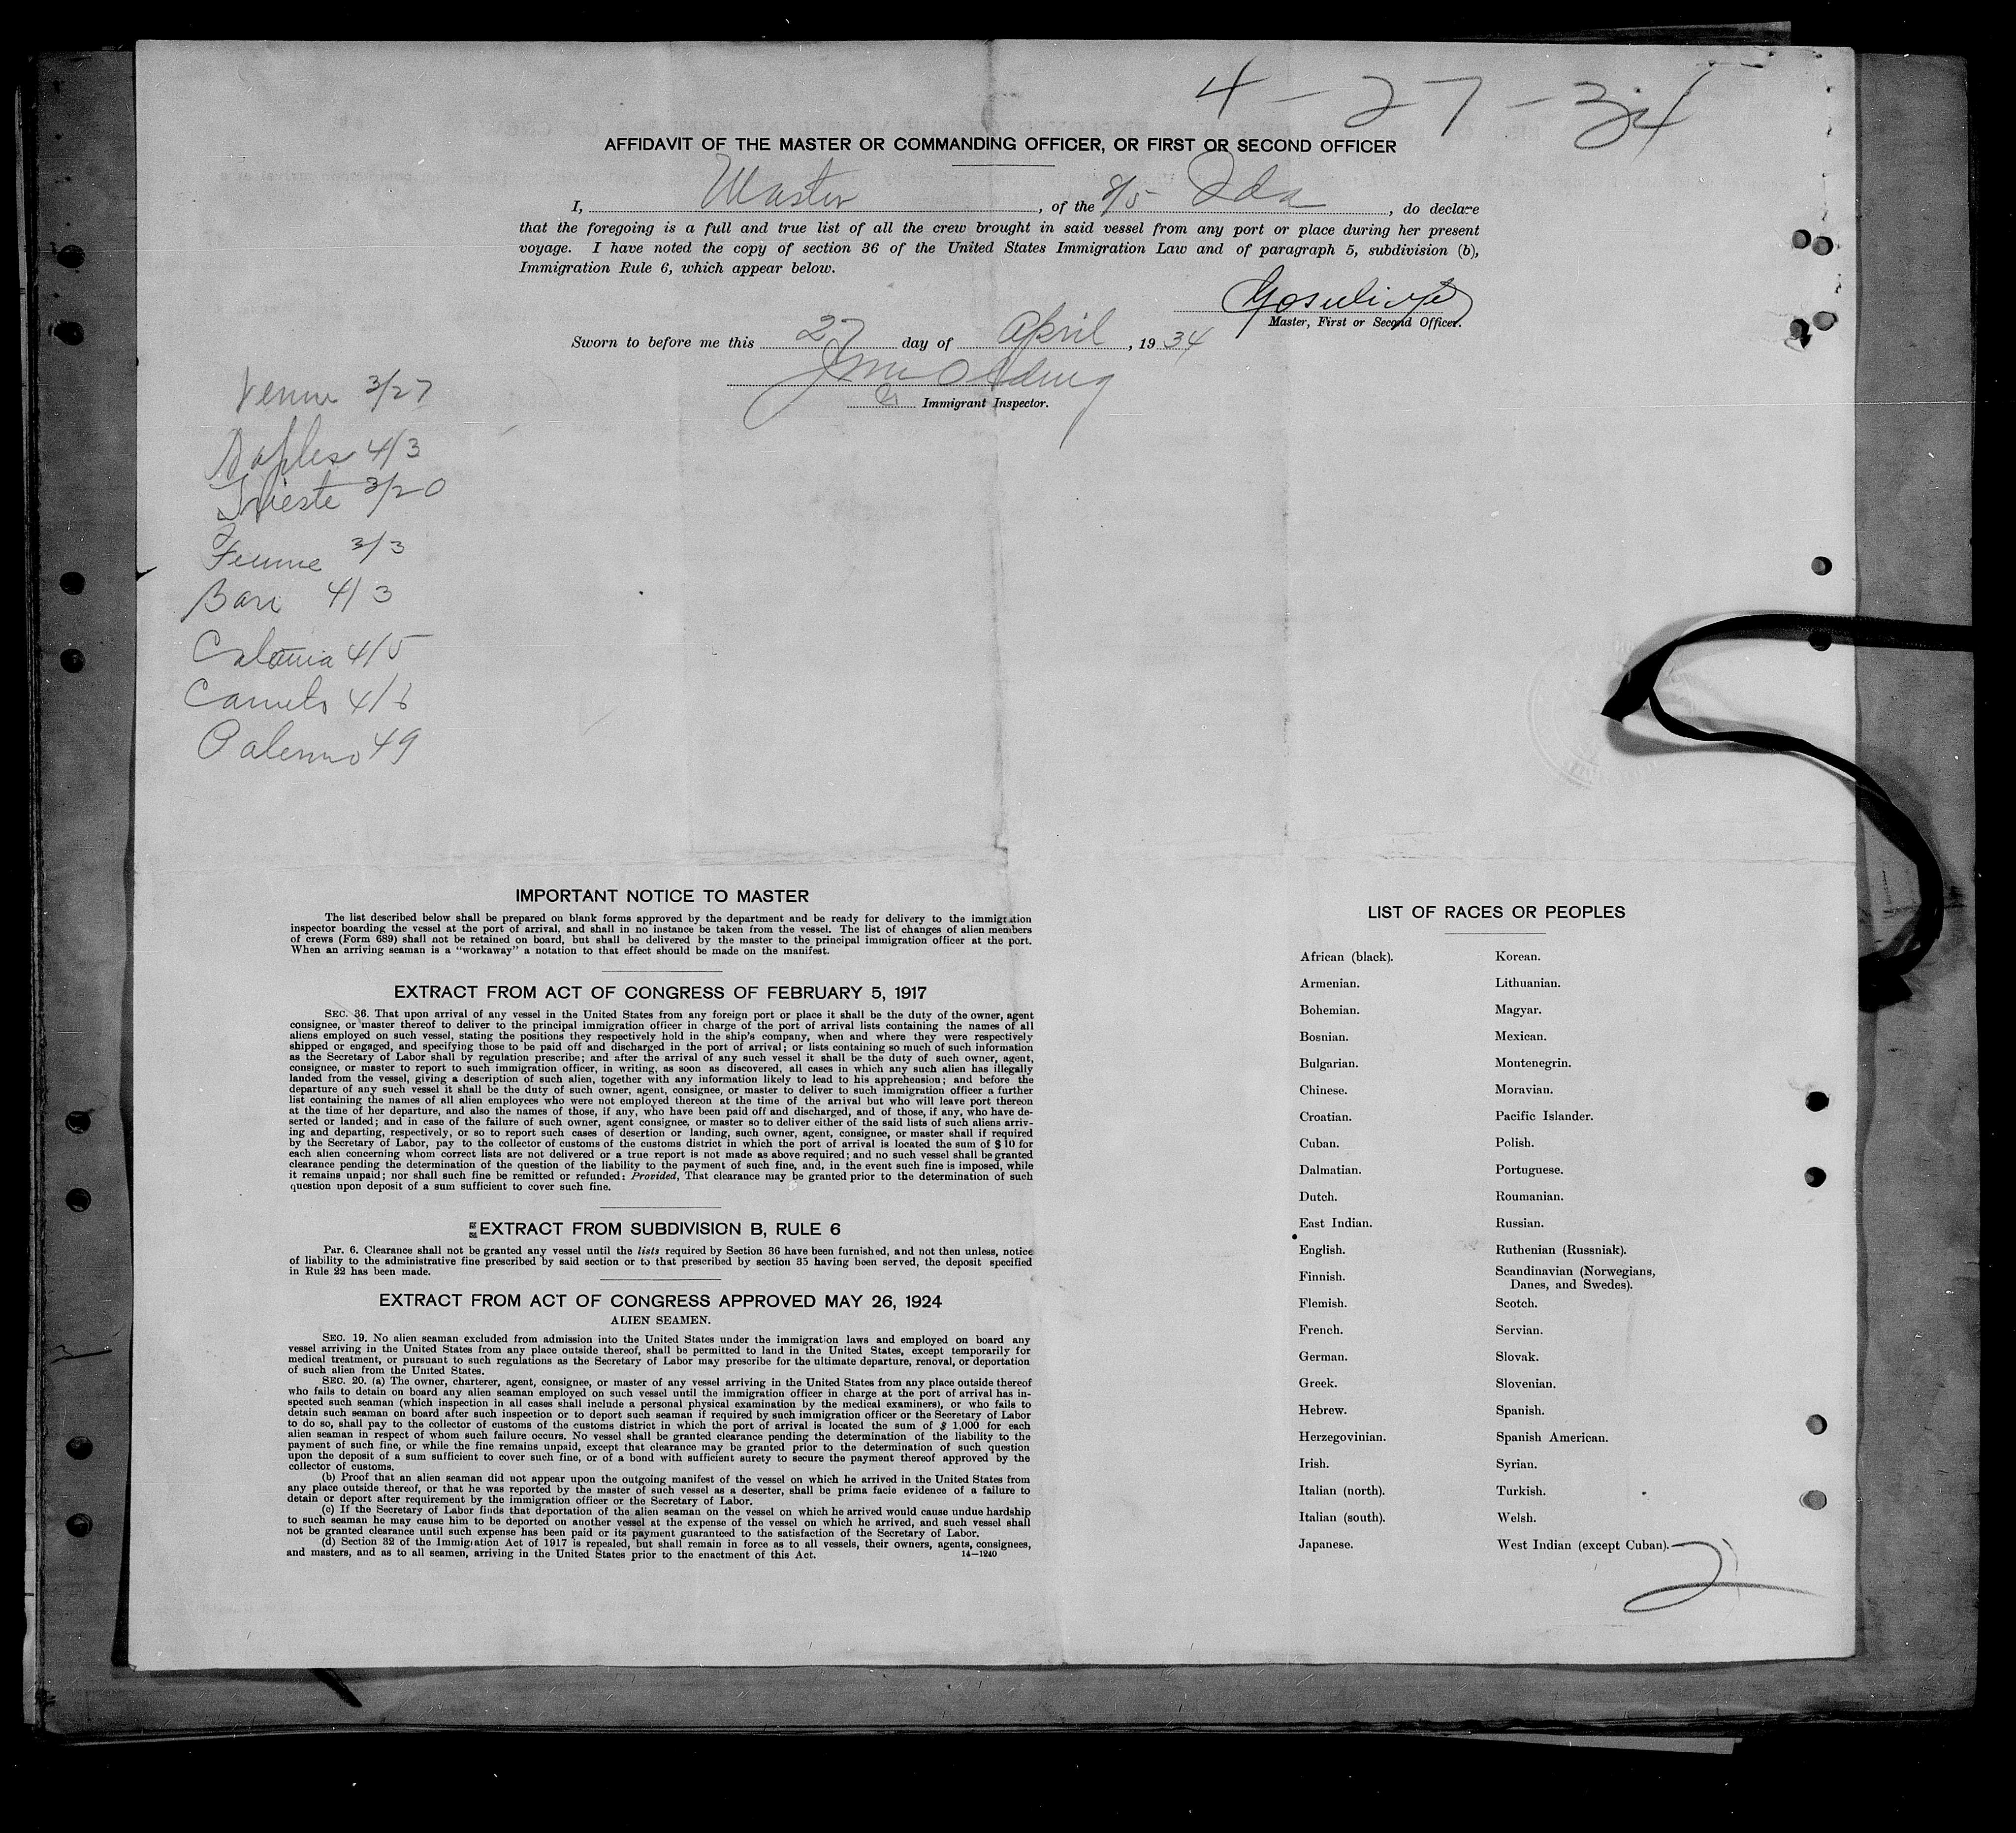 4-27-34
AFFIDAVIT OF THE MASTER OR COMMANDING OFFICER, OR FIRST OR SECOND OFFICER
I, Master, of the S/S Ida, do declare
that the foregoing is a full and true list of all the crew brought in said vessel from any port or place during her present
voyage. I have noted the copy of section 36 of the United States Immigration Law and of paragraph 5, subdivision (b),
Immigration Rule 6, which appear below.
Master, First or Second Officer.
Sworn to before me this 27 day of April, 1934
Immigrant Inspector.
3/27
Naples 4/3
Trieste 3/20
3/3
Bari 4/3
4/5
4/6
Palermo 49
IMPORTANT NOTICE TO MASTER
The list described below shall be prepared on blank forms approved by the department and be ready for delivery to the immigration
inspector boarding the vessel at the port of arrival, and shall in no instance be taken from the vessel. The list of changes of alien members
of crews (Form 689) shall not be retained on board, but shall be delivered by the master to the principal immigration officer at the port.
When an arriving seaman is a "workaway" a notation to that effect should be made on the manifest.
EXTRACT FROM ACT OF CONGRESS OF FEBRUARY 5, 1917
SEC. 36. That upon arrival of any vessel in the United States from any foreign port or place it shall be the duty of the owner, agent
consignee, or master thereof to deliver to the principal immigration officer in charge of the port of arrival lists containing the names of all
aliens employed on such vessel, stating the positions they respectively hold in the ship's company, when and where they were respectively
shipped or engaged, and specifying those to be paid off and discharged in the port of arrival; or lists containing so much of such information
as the Secretary of Labor shall by regulation prescribe; and after the arrival of any such vessel it shall be the duty of such owner, agent,
consignee, or master to report to such immigration officer, in writing, as soon as discovered, all cases in which any such alien has illegally
landed from the vessel, giving a description of such alien, together with any information likely to lead to his apprehension; and before the
departure of any such vessel it shall be the duty of such owner, agent, consignee, or master to deliver to such immigration officer a further
list containing the names of all alien employees who were not employed thereon at the time of the arrival but who will leave port thereon
at the time of her departure, and also the names of those, if any, who have been paid off and discharged, and of those, if any, who have de-
serted or landed; and in case of the failure of such owner, agent consignee, or master so to deliver either of the said lists of such aliens arriv-
ing and departing, respectively, or so to report such cases of desertion or landing, such owner, agent, consignee, or master shall if required
by the Secretary of Labor, pay to the collector of customs of the customs district in which the port of arrival is located the sum of $10 for
each alien concerning whom correct lists are not delivered or a true report is not made as above required; and no such vessel shall be granted
clearance pending the determination of the question of the liability to the payment of such fine, and, in the event such fine is imposed, while
it remains unpaid; nor shall such fine be remitted or refunded: Provided, That clearance may be granted prior to the determination of such
question upon deposit of a sum sufficient to cover such fine.
EXTRACT FROM SUBDIVISION B, RULE 6
PAR. 6. Clearance shall not be granted any vessel until the lists required by Section 36 have been furnished, and not then unless, notice
of liability to the administrative fine prescribed by said section or to that prescribed by section 35 having been served, the deposit specified
in Rule 22 has been made.
EXTRACT FROM ACT OF CONGRESS APPROVED MAY 26, 1924
ALIEN SEAMEN.
SEC. 19. No alien seaman excluded from admission into the United States under the immigration laws and employed on board any
vessel arriving in the United States from any place outside thereof, shall be permitted to land in the United States, except temporarily for
medical treatment, or pursuant to such regulations as the Secretary of Labor may prescribe for the ultimate departure, removal, or deportation
of such alien from the United States.
SEC. 20. (a) The owner, charterer, agent, consignee, or master of any vessel arriving in the United States from any place outside thereof
who fails to detain on board any alien seaman employed on such vessel until the immigration officer in charge at the port of arrival has in-
spected such seaman (which inspection in all cases shall include a personal physical examination by the medical examiners), or who fails to
detain such seaman on board after such inspection or to deport such seaman if required by such immigration officer or the Secretary of Labor
to do so, shall pay to the collector of customs of the customs district in which the port of arrival is located the sum of $ 1,000 for each
alien seaman in respect of whom such failure occurs. No vessel shall be granted clearance pending the determination of the liability to the
payment of such fine, or while the fine remains unpaid, except that clearance may be granted prior to the determination of such question
upon the deposit of a sum sufficient to cover such fine, or of a bond with sufficient surety to secure the payment thereof approved by the
collector of customs.
(b) Proof that an alien seaman did not appear upon the outgoing manifest of the vessel on which he arrived in the United States from
any place outside thereof, or that he was reported by the master of such vessel as a deserter, shall be prima facie evidence of a failure to
detain or deport after requirement by the immigration officer or the Secretary of Labor.
(c) If the Secretary of Labor finds that deportation of the alien seaman on the vessel on which he arrived would cause undue hardship
to such seaman he may cause him to be deported on another vessel at the expense of the vessel on which he arrived, and such vessel shall
not be granted clearance until such expense has been paid or its payment guaranteed to the satisfaction of the Secretary of Labor.
(d) Section 32 of the Immigration Act of 1917 is repealed, but shall remain in force as to all vessels, their owners, agents, consignees,
and masters, and as to all seamen, arriving in the United States prior to the enactment of this Act.
14—1240
LIST OF RACES OR PEOPLES
African (black).
Armenian.
Bohemian.
Bosnian.
Bulgarian.
Chinese.
Croatian.
Cuban.
Dalmatian.
Dutch.
East Indian.
English.
Finnish.
Flemish.
French.
German.
Greek.
Hebrew.
Herzegovinian.
Irish.
Italian (north).
Italian (south).
Japanese.
Korean.
Lithuanian.
Magyar.
Mexican.
Montenegrin.
Moravian.
Pacific Islander.
Polish.
Portuguese.
Roumanian.
Russian.
Ruthenian (Russniak).
Scandinavian (Norwegians,
Danes, and Swedes).
Scotch.
Servian.
Slovak.
Slovenian.
Spanish.
Spanish American.
Syrian.
Turkish.
Welsh.
West Indian (except Cuban).
2